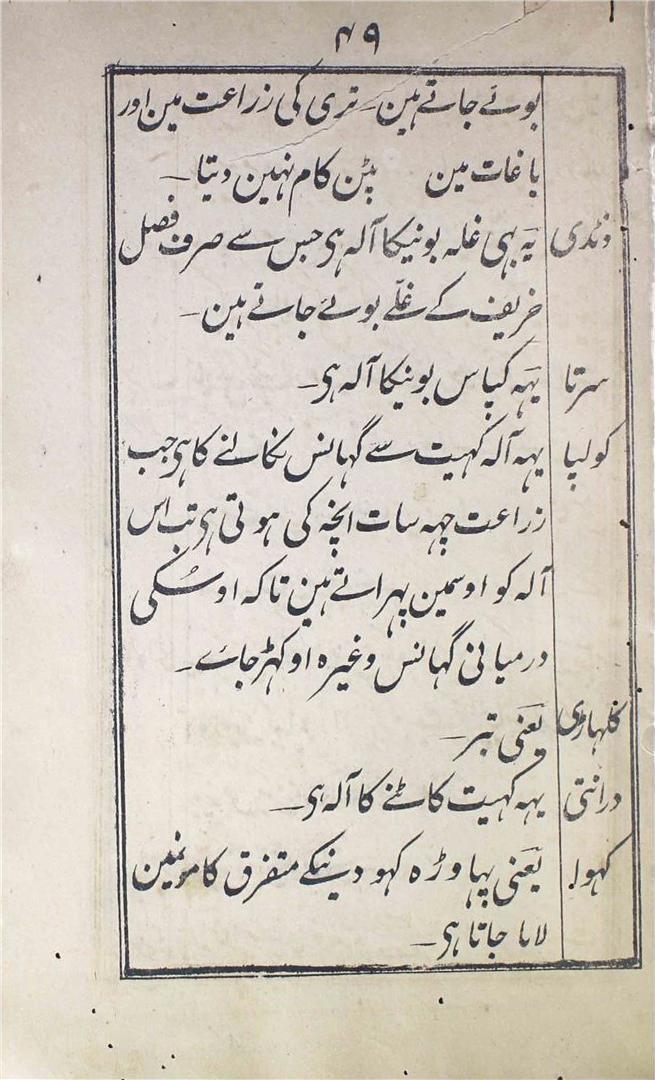 ۴۹
بوئے جاتے ہین۔ تری کی زراعت مین اور
باغات مین پٹن کام نہین دیتا۔
دنڈی یہ بہی غلہ بونیکا آلہ ہی جس سے صرف فصل
خریف کے غلّے بوئے جاتے ہین۔
سرتا یہہ کپاس بونیکا آلہ ہی۔
کولپا یہہ آلہ کہیت سے گہانس نکالنے کا ہی جب
زراعت چہہ سات انچہ کی ہوتی ہی تب اس
آلہ کو اوسمین پہراتے ہین تاکہ اوسکی
درمیانی گہانس وغیرہ اوکہڑ جاے۔
کلہاڑی یعنی تبر۔
درانتی یہہ کہیت کاٹنے کا آلہ ہی۔
کہورا یعنی پہاوڑہ کہودینکے متفرق کامونمین
لایا جاتا ہی۔